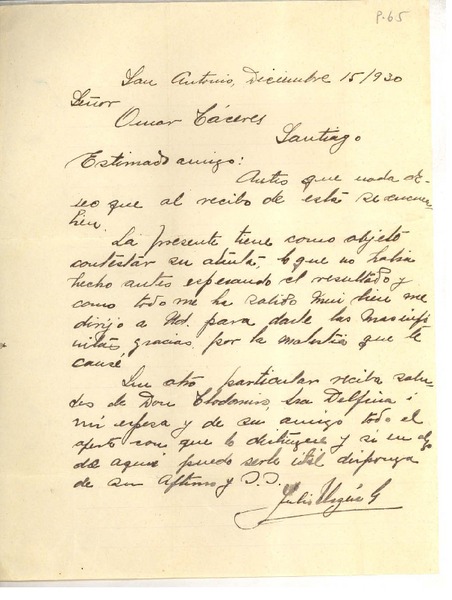 P-65
San Antonio, Diciembre 15/930
Señor
Omar Cáceres
Santiago
Estimado amigo:
Antes que nada de-
seo que al recibo de esta se encuen-
bien.
La presente tiene como objeto
contestar su atenta, lo que no había
hecho antes esperando el resultado y
como todo me ha salido mui bien me
dirijo a Ud. para darle las mas infi-
nitas gracias por la molestia que le
causé
Sin otro particular reciba salu-
dos de Don Clodomiro, Sra Delfina i
mi esposa y de su amigo todo el
afecto con que lo distingue y si en algo
de aqui puedo serle útil disponga
de su Afthmo y S.S.
Julio G